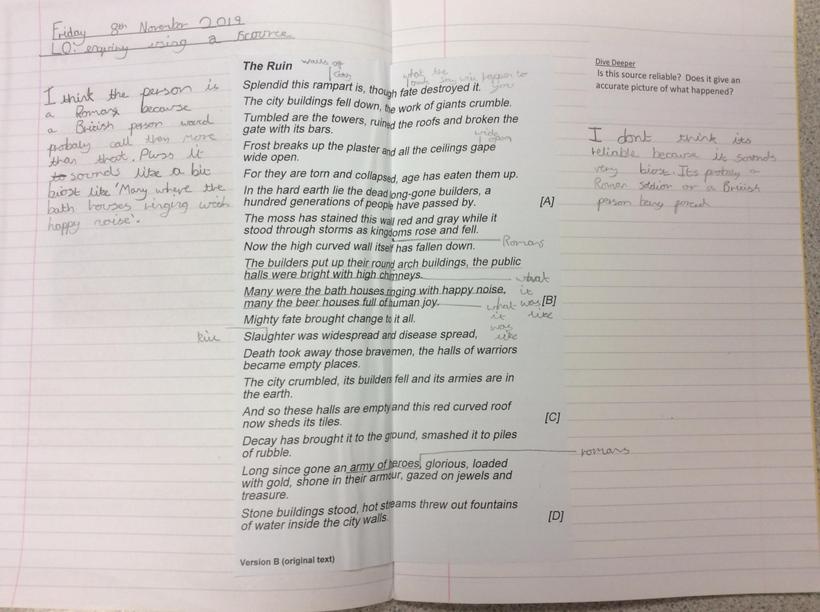 Friday 8th November 2019
LO: enquiring using a source
I think the person is
a Roman because
a British person word
probaly call them more
than that. Pluss it
to sounds like a bit
biost like 'Many where the
bath houses ringing with
happy noise'.
The Ruin
walls of
City
what the
you
Splendid this rampart is, though fate destroyed it.
The city buildings fell down, the work of giants crumble.
Tumbled are the towers, ruined the roofs and broken the
gate with its bars.
wide
open
Frost breaks up the plaster and all the ceilings gape
wide open.
For they are torn and collapsed, age has eaten them up.
In the hard earth lie the dead long-gone builders, a
hundred generations of people have passed by. [A]
The moss has stained this wall red and gray while it
stood through storms as kingdoms rose and fell.
Romans
Now the high curved wall itself has fallen down.
The builders put up their round arch buildings, the public
halls were bright with high chimneys.
what
it
was
like
Many were the bath houses ringing with happy noise,
many the beer houses full of human joy. [B]
what
it
was
like
Mighty fate brought change to it all.
kill
Slaughter was widespread and disease spread,
Death took away those brave men, the halls of warriors
became empty places.
The city crumbled, its builders fell and its armies are in
the earth.
And so these halls are empty and this red curved roof
now sheds its tiles. [C]
Decay has brought it to the ground, smashed it to piles
of rubble.
romans
Long since gone an army of heroes, glorious, loaded
with gold, shone in their armour, gazed on jewels and
treasure.
Stone buildings stood, hot streams threw out fountains
of water inside the city walls. [D]
Version B (original text)
Dive Deeper
Is this source reliable? Does it give an
accurate picture of what happened?
I dont think its
reliable because it sounds
very biost. Its probaly a
Roman soldior or a British
person being forced